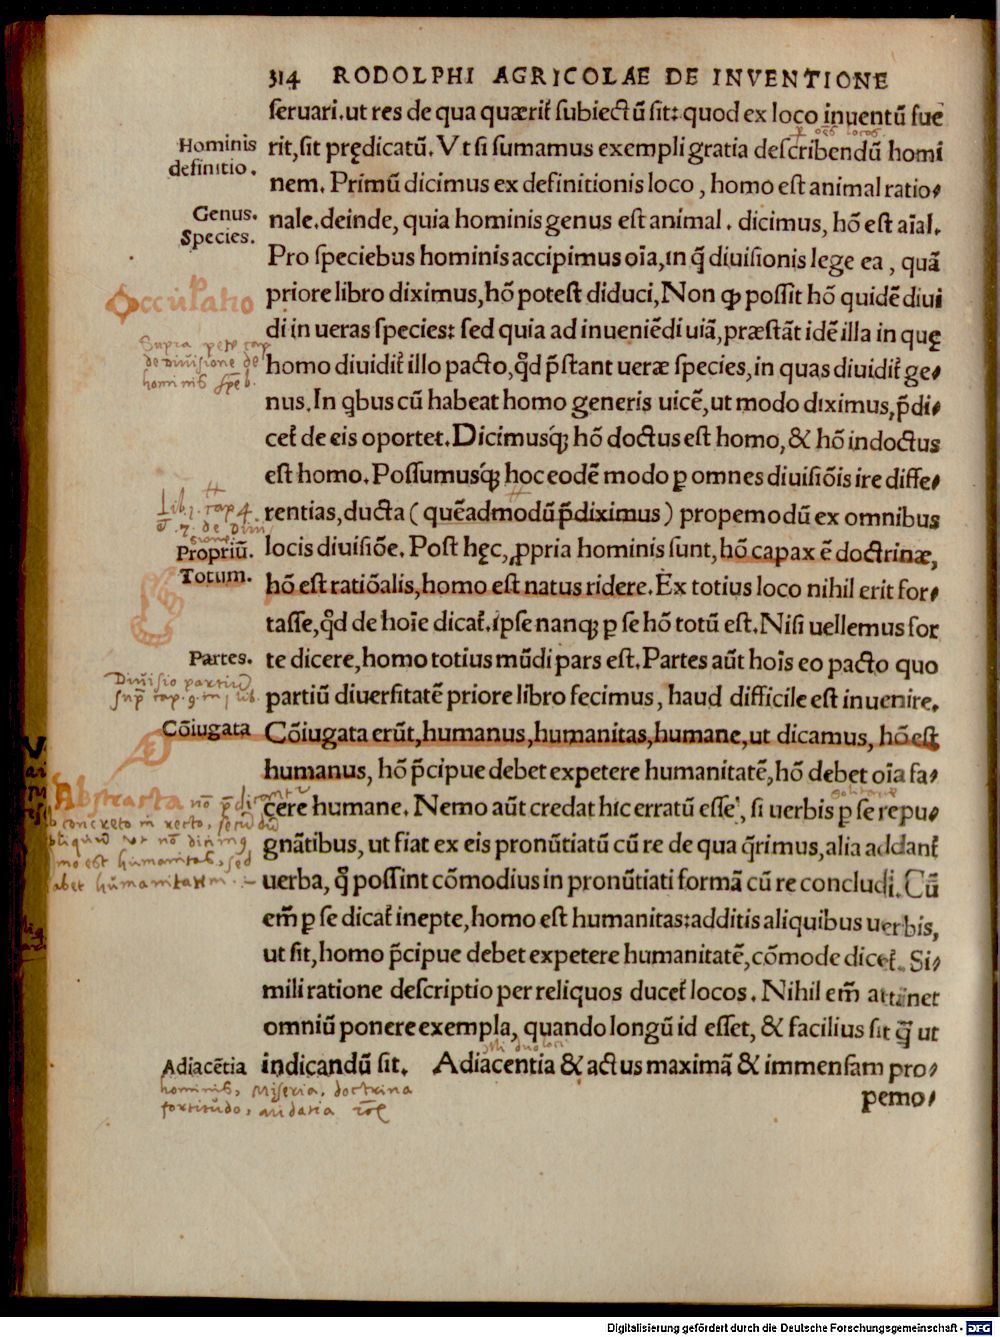 314 RODOLPHI AGRICOLAE DE INVENTIONE
seruari.ut res de qua quærit̃ subiectũ sit: quod ex loco inuentũ fue
rit,sit prędicatũ. Vt si sumamus exempli gratia describendũ homi
nem. Primũ dicimus ex definitionis loco, homo est animal ratio-
nale.deinde, quia hominis genus est animal. dicimus, hõ est aĩal.
Pro speciebus hominis accipimus oĩa,in q̃ diuisionis lege ea, quã
priore libro diximus,hõ potest diduci,Non ꝙ possit hõ quidẽ diui
di in ueras species: sed quia ad inueniẽdi uiã,præstãt idẽ illa in quę
homo diuidit̃ illo pacto,q̃d p̃stant ueræ species,in quas diuidit̃ ge-
nus.In qbus cũ habeat homo generis uicẽ,ut modo diximus,p̃di-
cet̃ de eis oportet.Dicimusq; hõ doctus est homo,& hõ indoctus
est homo.Possumusq; hoc eodẽ modo ꝑ omnes diuisiõis ire diffe-
rentias,ducta (quẽadmodũ p̃diximus) propemodũ ex omnibus
locis diuisiõe. Post hęc,ꝓpria hominis sunt,hõ capax ẽ doctrinæ,
hõ est ratiõalis,homo est natus ridere.Ex totius loco nihil erit for-
tasse,q̃d de hoĩe dicat̃.ipse nanq; ꝑ se hõ totũ est.Nisi uellemus for
te dicere,homo totius mũdi pars est.Partes aũt hoĩs eo pacto quo
partiũ diuersitatẽ priore libro fecimus, haud difficile est inuenire.
Cõiugata erũt,humanus,humanitas,humane,ut dicamus, hõ est
humanus, hõ p̃cipue debet expetere humanitatẽ,hõ debet oĩa fa-
cere humane. Nemo aũt credat hic erratũ esse, si uerbis ꝑ se repu-
gnãtibus, ut fiat ex eis pronũtiatũ cũ re de qua q̃rimus,alia addant̃
uerba, q̃ possint cõmodius in pronũtiati formã cũ re concludi. Cũ
em̃ ꝑ se dicat̃ inepte,homo est humanitas:additis aliquibus uerbis,
ut sit,homo p̃cipue debet expetere humanitatẽ,cõmode dicet̃. Si-
mili ratione descriptio per reliquos ducet̃ locos. Nihil em̃ attinet
omniũ ponere exempla, quando longũ id esset, & facilius sit q̃ ut
indicandũ sit. Adiacentia & actus maximã & immensam pro-
pemo-
Hominis
definitio.
Genus.
Species.
Occupatio
Supra pete cap
de diuisione de
hominis speb.
Lib. 1. cap 4.
Propriũ.
Totum.
Partes.
Diuisio partiũ
sup̃ cap. 9. m 1 lib.
Cõiugata
Abstracta nõ p̃dicant
concreto in recto, secũdũ
mo est humanitas, sed
abet humanitatem.
Adiacẽtia
hominis, Miseria, doctrina
fortitudo, audatia